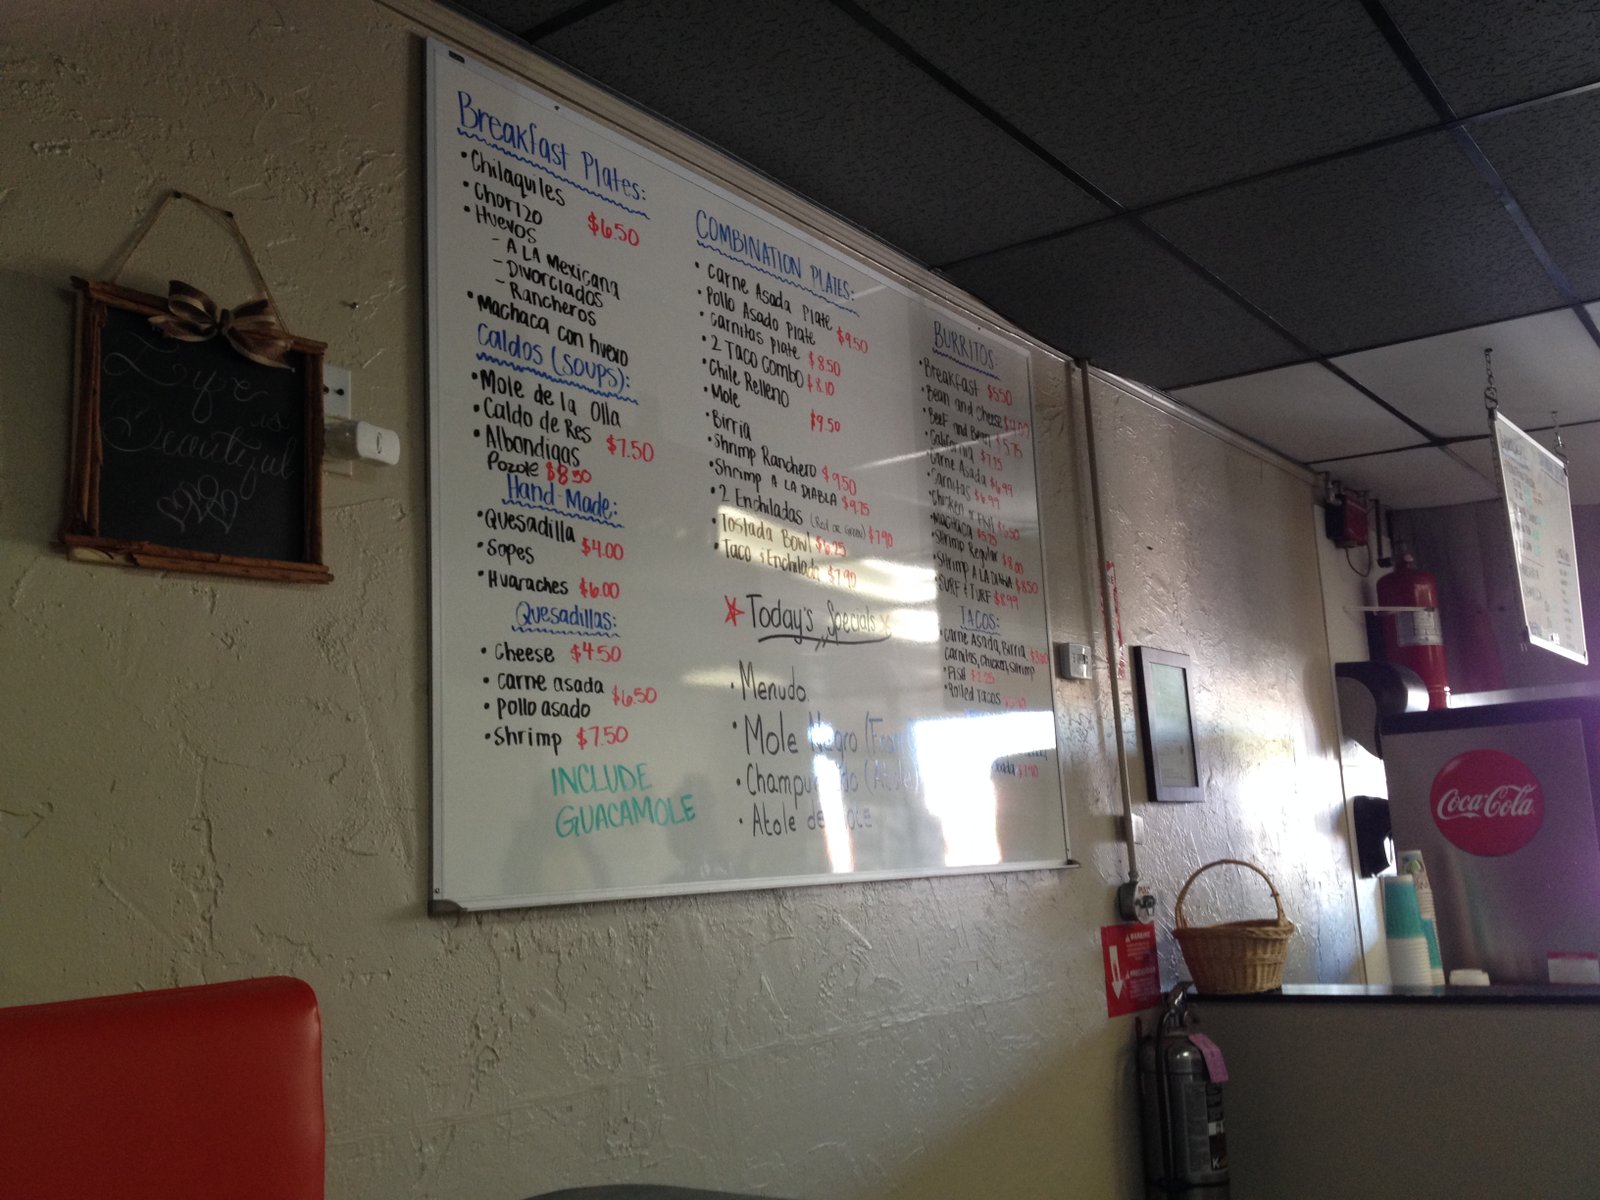 Life is
Beautiful
Breakfast Plates:
• Chilaquiles
• Chorizo
$6.50
• Huevos
- A LA Mexicana
- Divorciados
- Rancheros
• Machaca con huevo
Caldos (SOUPS):
• Mole de la Olla
• Caldo de Res
$7.50
• Albondigas
Pozole $8.50
Hand-Made:
• Quesadilla
$4.00
• Sopes
• Huaraches $6.00
Quesadillas:
• Cheese $4.50
• carne asada
$6.50
• pollo asado
• Shrimp $7.50
INCLUDE
GUACAMOLE
COMBINATION PLATES:
• Carne Asada Plate
$9.50
• Pollo Asado Plate
• Carnitas Plate $8.50
• 2 TACO COMBO $8.10
• Chile Relleno
• Mole
$9.50
• Birria
• Shrimp Ranchero $9.50
• Shrimp A LA DIABLA $9.75
• 2 Enchiladas (Red or Green) $7.90
• Tostada Bowl $6.25
• Taco & Enchilada $7.90
* Today's Specials *
• Menudo
• Mole Negro
• Champurrado (Atole)
• Atole de
BURRITOS:
• Breakfast $5.50
• Bean and Cheese
• Beef and Bean $5.75
• California $7.75
• Carne Asada $6.99
• Carnitas $6.99
• Chicken $6.50
• Machaca
• Shrimp Regular $8.00
• Shrimp A LA DIABLA $8.50
• SURF & TURF $8.99
TACOS:
• Carne Asada, Birria
Carnitas, Chicken, Shrimp
• Fish
• Rolled Tacos
Coca-Cola